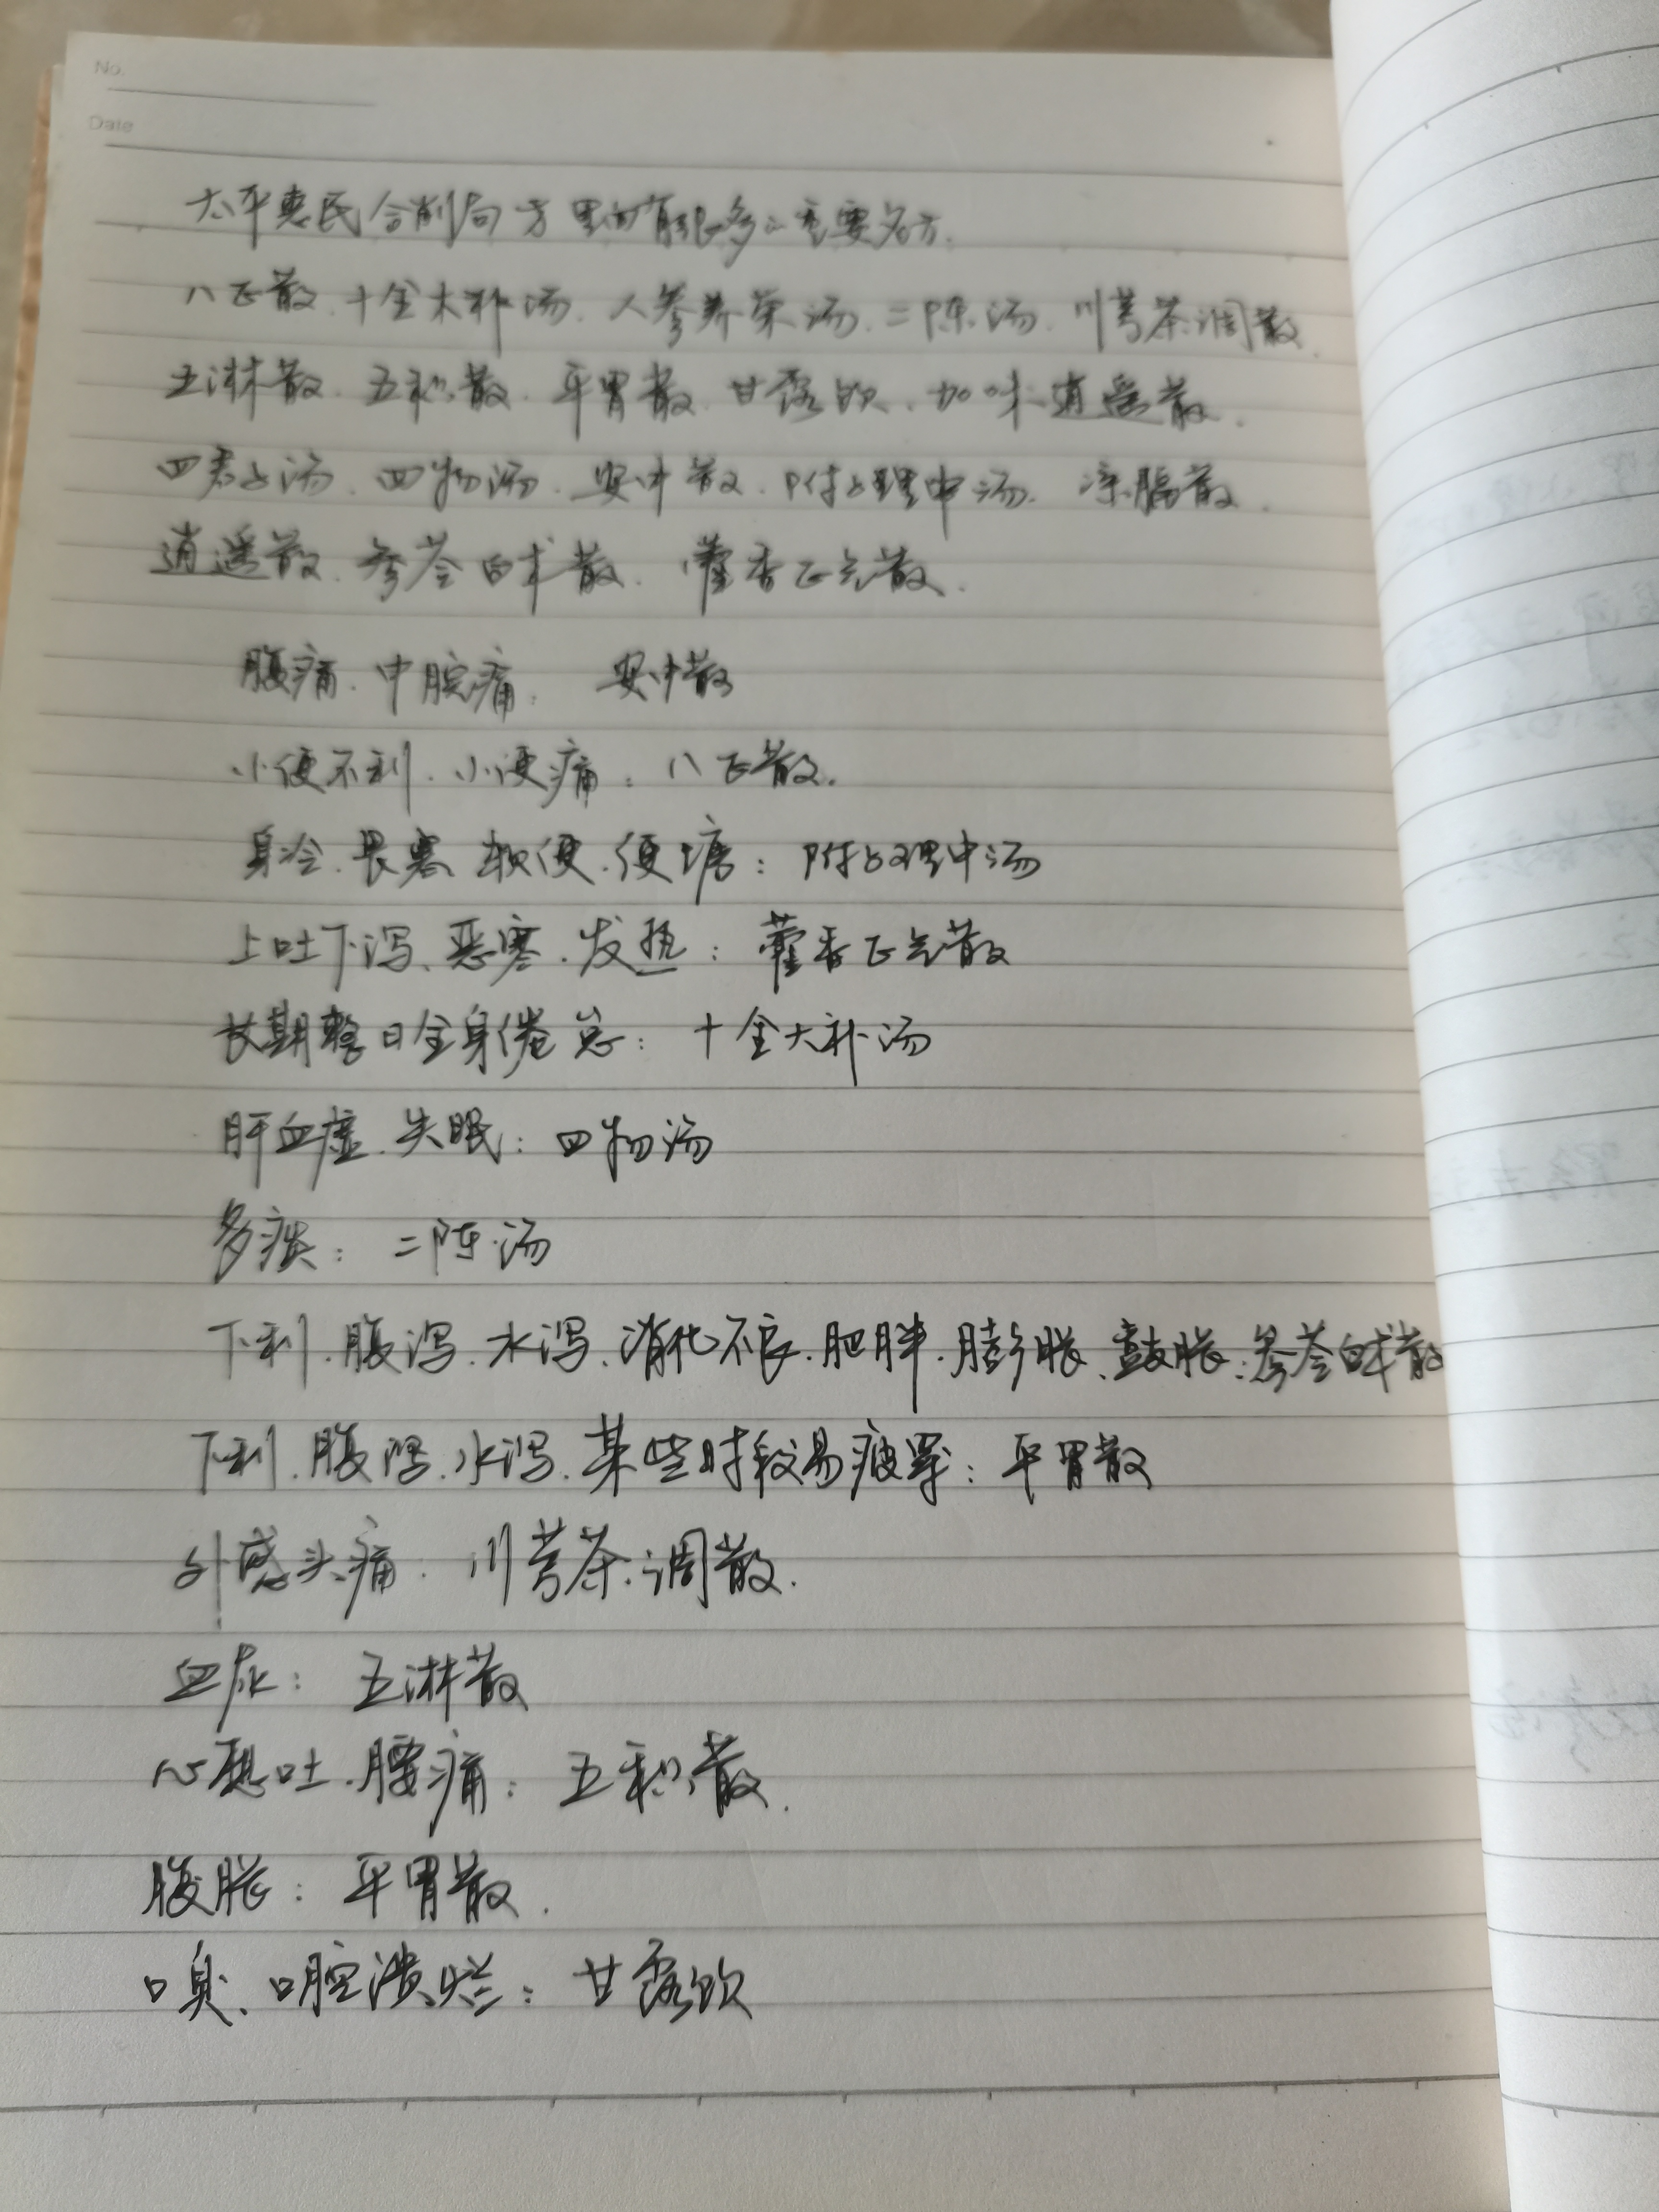 No.
Date
太平惠民合剂局方里面有很多重要名方.
八正散.十全大补汤.人参养荣汤.二陈汤.川芎茶调散.
五淋散.五积散.平胃散.甘露饮.加味逍遥散.
四君子汤.四物汤.安中散.附子理中汤.凉膈散.
逍遥散.参苓白术散.藿香正气散.
腹痛.中脘痛: 安中散
小便不利.小便痛:八正散.
身冷.畏寒.软便.便塘:附子理中汤
上吐下泻、恶寒.发热:藿香正气散
长期整日全身倦怠:十全大补汤
肝血虚.失眠:四物汤
多痰:二陈汤
下利.腹泻.水泻、消化不良.肥胖.膨胀、鼓胀:参苓白术散
下利.腹泻.水泻.某些时段易疲累:平胃散
外感头痛.川芎茶调散.
血尿:五淋散
心想吐.腰痛:五积散.
腹胀:平胃散.
口臭、口腔溃烂:甘露饮